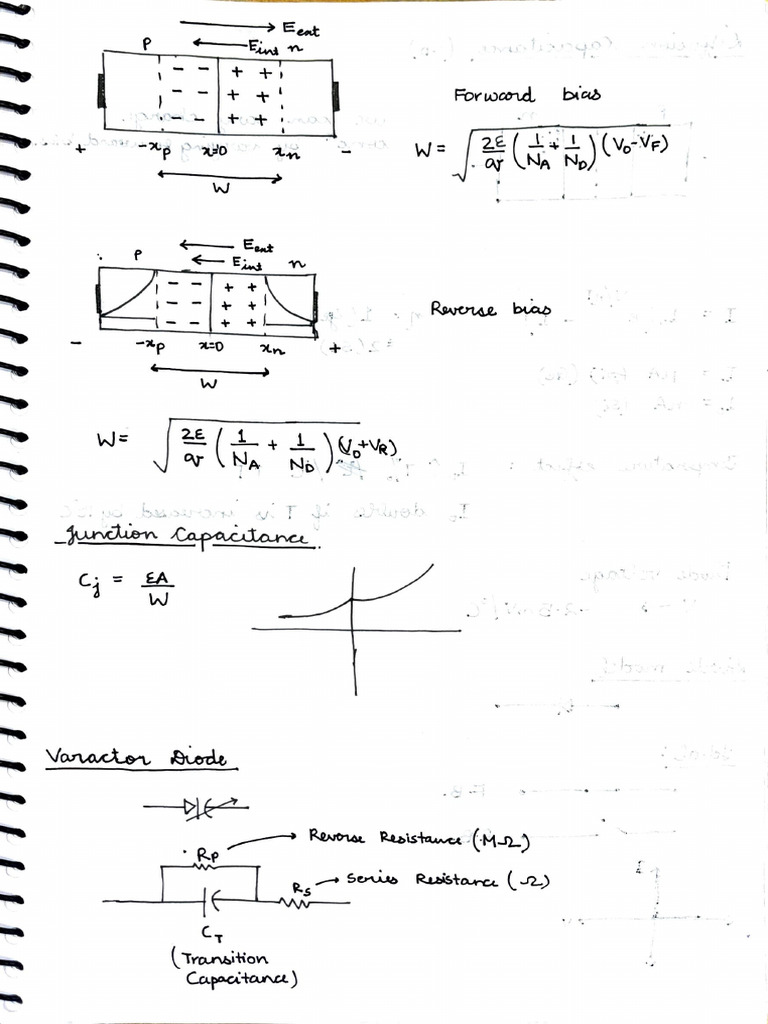 E_ext
p E_int n
- - + +
- - + +
- - + +
+ -x_p x=0 x_n -
W
Forward bias
W = √(2ε/q (1/N_A + 1/N_D) (V_0 - V_F))
E_ext
p E_int n
- - + +
- - + +
- - + +
- -x_p x=0 x_n +
W
Reverse bias
W = √(2ε/q (1/N_A + 1/N_D) (V_0 + V_R))
Junction Capacitance
C_j = εA/W
Varactor Diode
R_P Reverse Resistance (MΩ)
R_s Series Resistance (Ω)
C_T
(Transition
Capacitance)